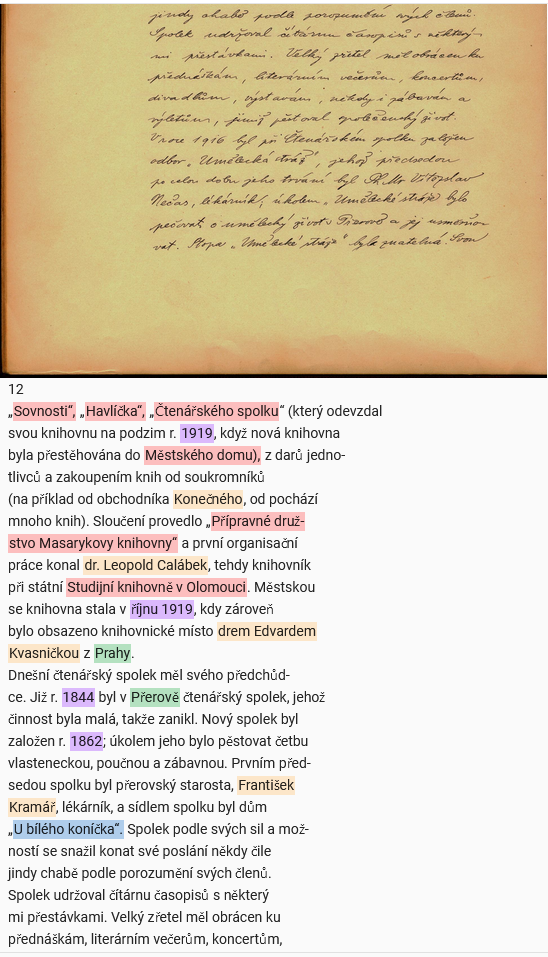 jindy chabě podle porozumění svých členů.
Spolek udržoval čítárnu časopisů s některý-
mi přestávkami. Velký zřetel měl obrácen ku
přednáškám, literárním večerům, koncertům,
divadlům, výstavám, někdy i zábavám a
výletům, jimiž pěstoval společenský život.
V roce 1916 byl při Čtenářském spolku založen
odbor „Umělecká stráž", jehož předsedou
po celou dobu jeho trvání byl Ph. Mr. Vítězslav
Nečas, lékárník; úkolem „Umělecké stráže bylo
pečovat o umělecký život v Přerově a jej usměrňo-
vat. Stopa „Umělecké stráže" byla znatelná. Svou
12
„Sovnosti“, „Havlíčka“, „Čtenářského spolku“ (který odevzdal
svou knihovnu na podzim r. 1919, když nová knihovna
byla přestěhována do Městského domu), z darů jedno-
tlivců a zakoupením knih od soukromníků
(na příklad od obchodníka Konečného, od pochází
mnoho knih). Sloučení provedlo „Přípravné druž-
stvo Masarykovy knihovny“ a první organisační
práce konal dr. Leopold Calábek, tehdy knihovník
při státní Studijní knihovně v Olomouci. Městskou
se knihovna stala v říjnu 1919, kdy zároveň
bylo obsazeno knihovnické místo drem Edvardem
Kvasničkou z Prahy.
Dnešní čtenářský spolek měl svého předchůd-
ce. Již r. 1844 byl v Přerově čtenářský spolek, jehož
činnost byla malá, takže zanikl. Nový spolek byl
založen r. 1862; úkolem jeho bylo pěstovat četbu
vlasteneckou, poučnou a zábavnou. Prvním před-
sedou spolku byl přerovský starosta, František
Kramář, lékárník, a sídlem spolku byl dům
„U bílého koníčka“. Spolek podle svých sil a mož-
ností se snažil konat své poslání někdy čile
jindy chabě podle porozumění svých členů.
Spolek udržoval čítárnu časopisů s některý
mi přestávkami. Velký zřetel měl obrácen ku
přednáškám, literárním večerům, koncertům,